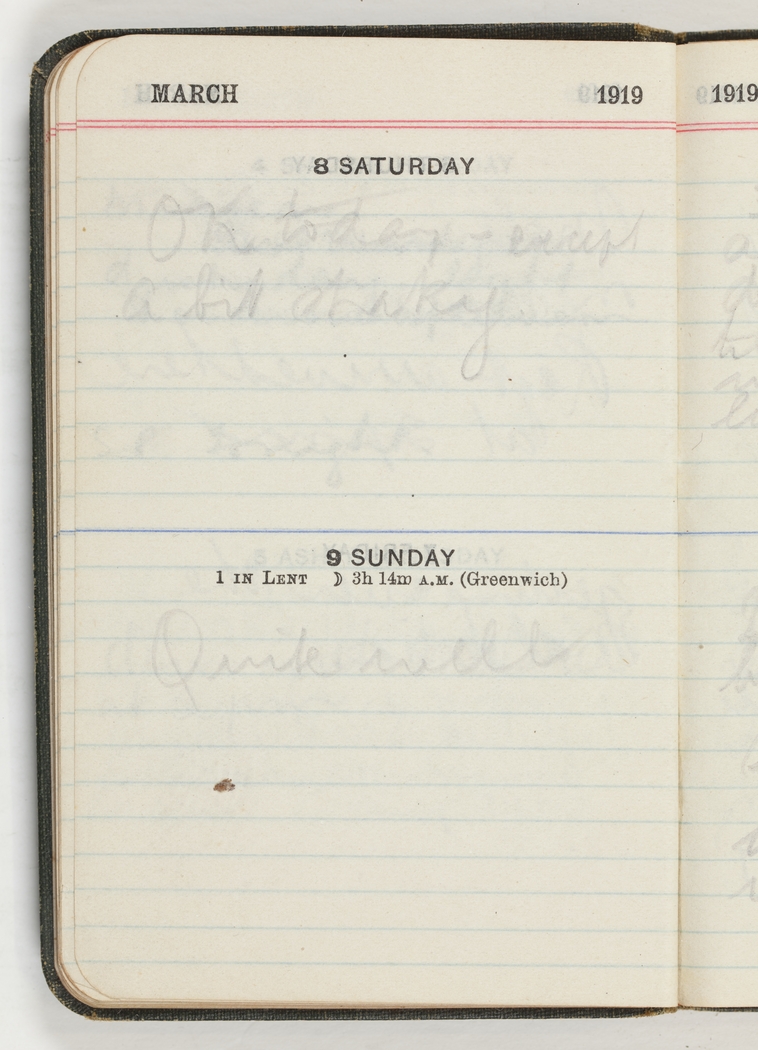 MARCH 1919
8 SATURDAY
OK today - except
a bit shaky
9 SUNDAY
1 IN LENT ☽ 3h 14m A.M. (Greenwich)
Quite well
1919